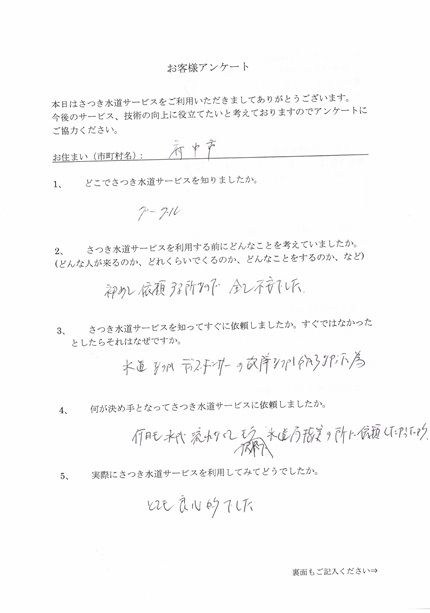 お客様アンケート
本日はさつき水道サービスをご利用いただきましてありがとうございます。
今後のサービス、技術の向上に役立てたいと考えておりますのでアンケートに
ご協力ください。
お住まい（市町村名）： 府中市
1、 どこでさつき水道サービスを知りましたか。
グーグル
2、 さつき水道サービスを利用する前にどんなことを考えていましたか。
(どんな人が来るのか、どれくらいでくるのか、どんなことをするのか、など)
初めて依頼する所なので 少し不安でした
3、 さつき水道サービスを知ってすぐに依頼しましたか。すぐではなかった
としたらそれはなぜですか。
水道なのか ディスポーザーの故障なのか分らなかった為
4、 何が決め手となってさつき水道サービスに依頼しましたか。
水道局指定の所に依頼したかったから
5、 実際にさつき水道サービスを利用してみてどうでしたか。
とても良心的でした
裏面もご記入ください⇒